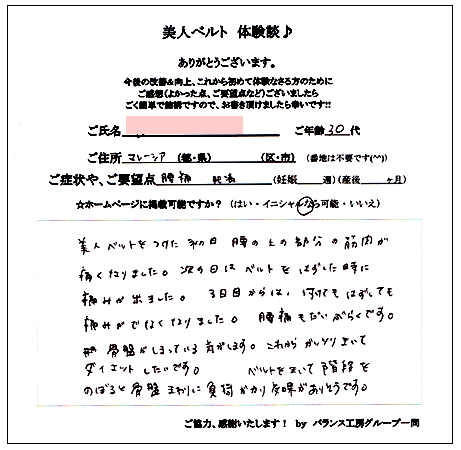 美人ベルト 体験談♪
ありがとうございます。
今後の改善&向上、これから初めて体験なさる方のために
ご感想(よかった点、ご要望点など)ございましたら
ごく簡単で結構ですので、お書き頂けましたら幸いです!!
ご氏名 ご年齢 30 代
ご住所 マレーシア (都・県) (区・市) (番地は不要です(^^))
ご症状や、ご要望点 腰痛 (妊娠 週)(産後 ヶ月)
☆ホームページに掲載可能ですか? (はい・イニシャルなら可能・いいえ)
美人ベルトをつけた初日 腰の上の部分の筋肉が
痛くなりました。次の日はベルトをはずした時に
痛みが出ました。3日目からは、付けてもはずしても
痛みがでなくなりました。腰痛もだいぶらくです。
骨盤がしまっている気がします。これからがんばりまいて
ダイエットしたいです。 ベルトをまいて階段を
のぼると骨盤まわりに負荷がかかり効果がありそうです。
ご協力、感謝いたします! by バランス工房グループ一同